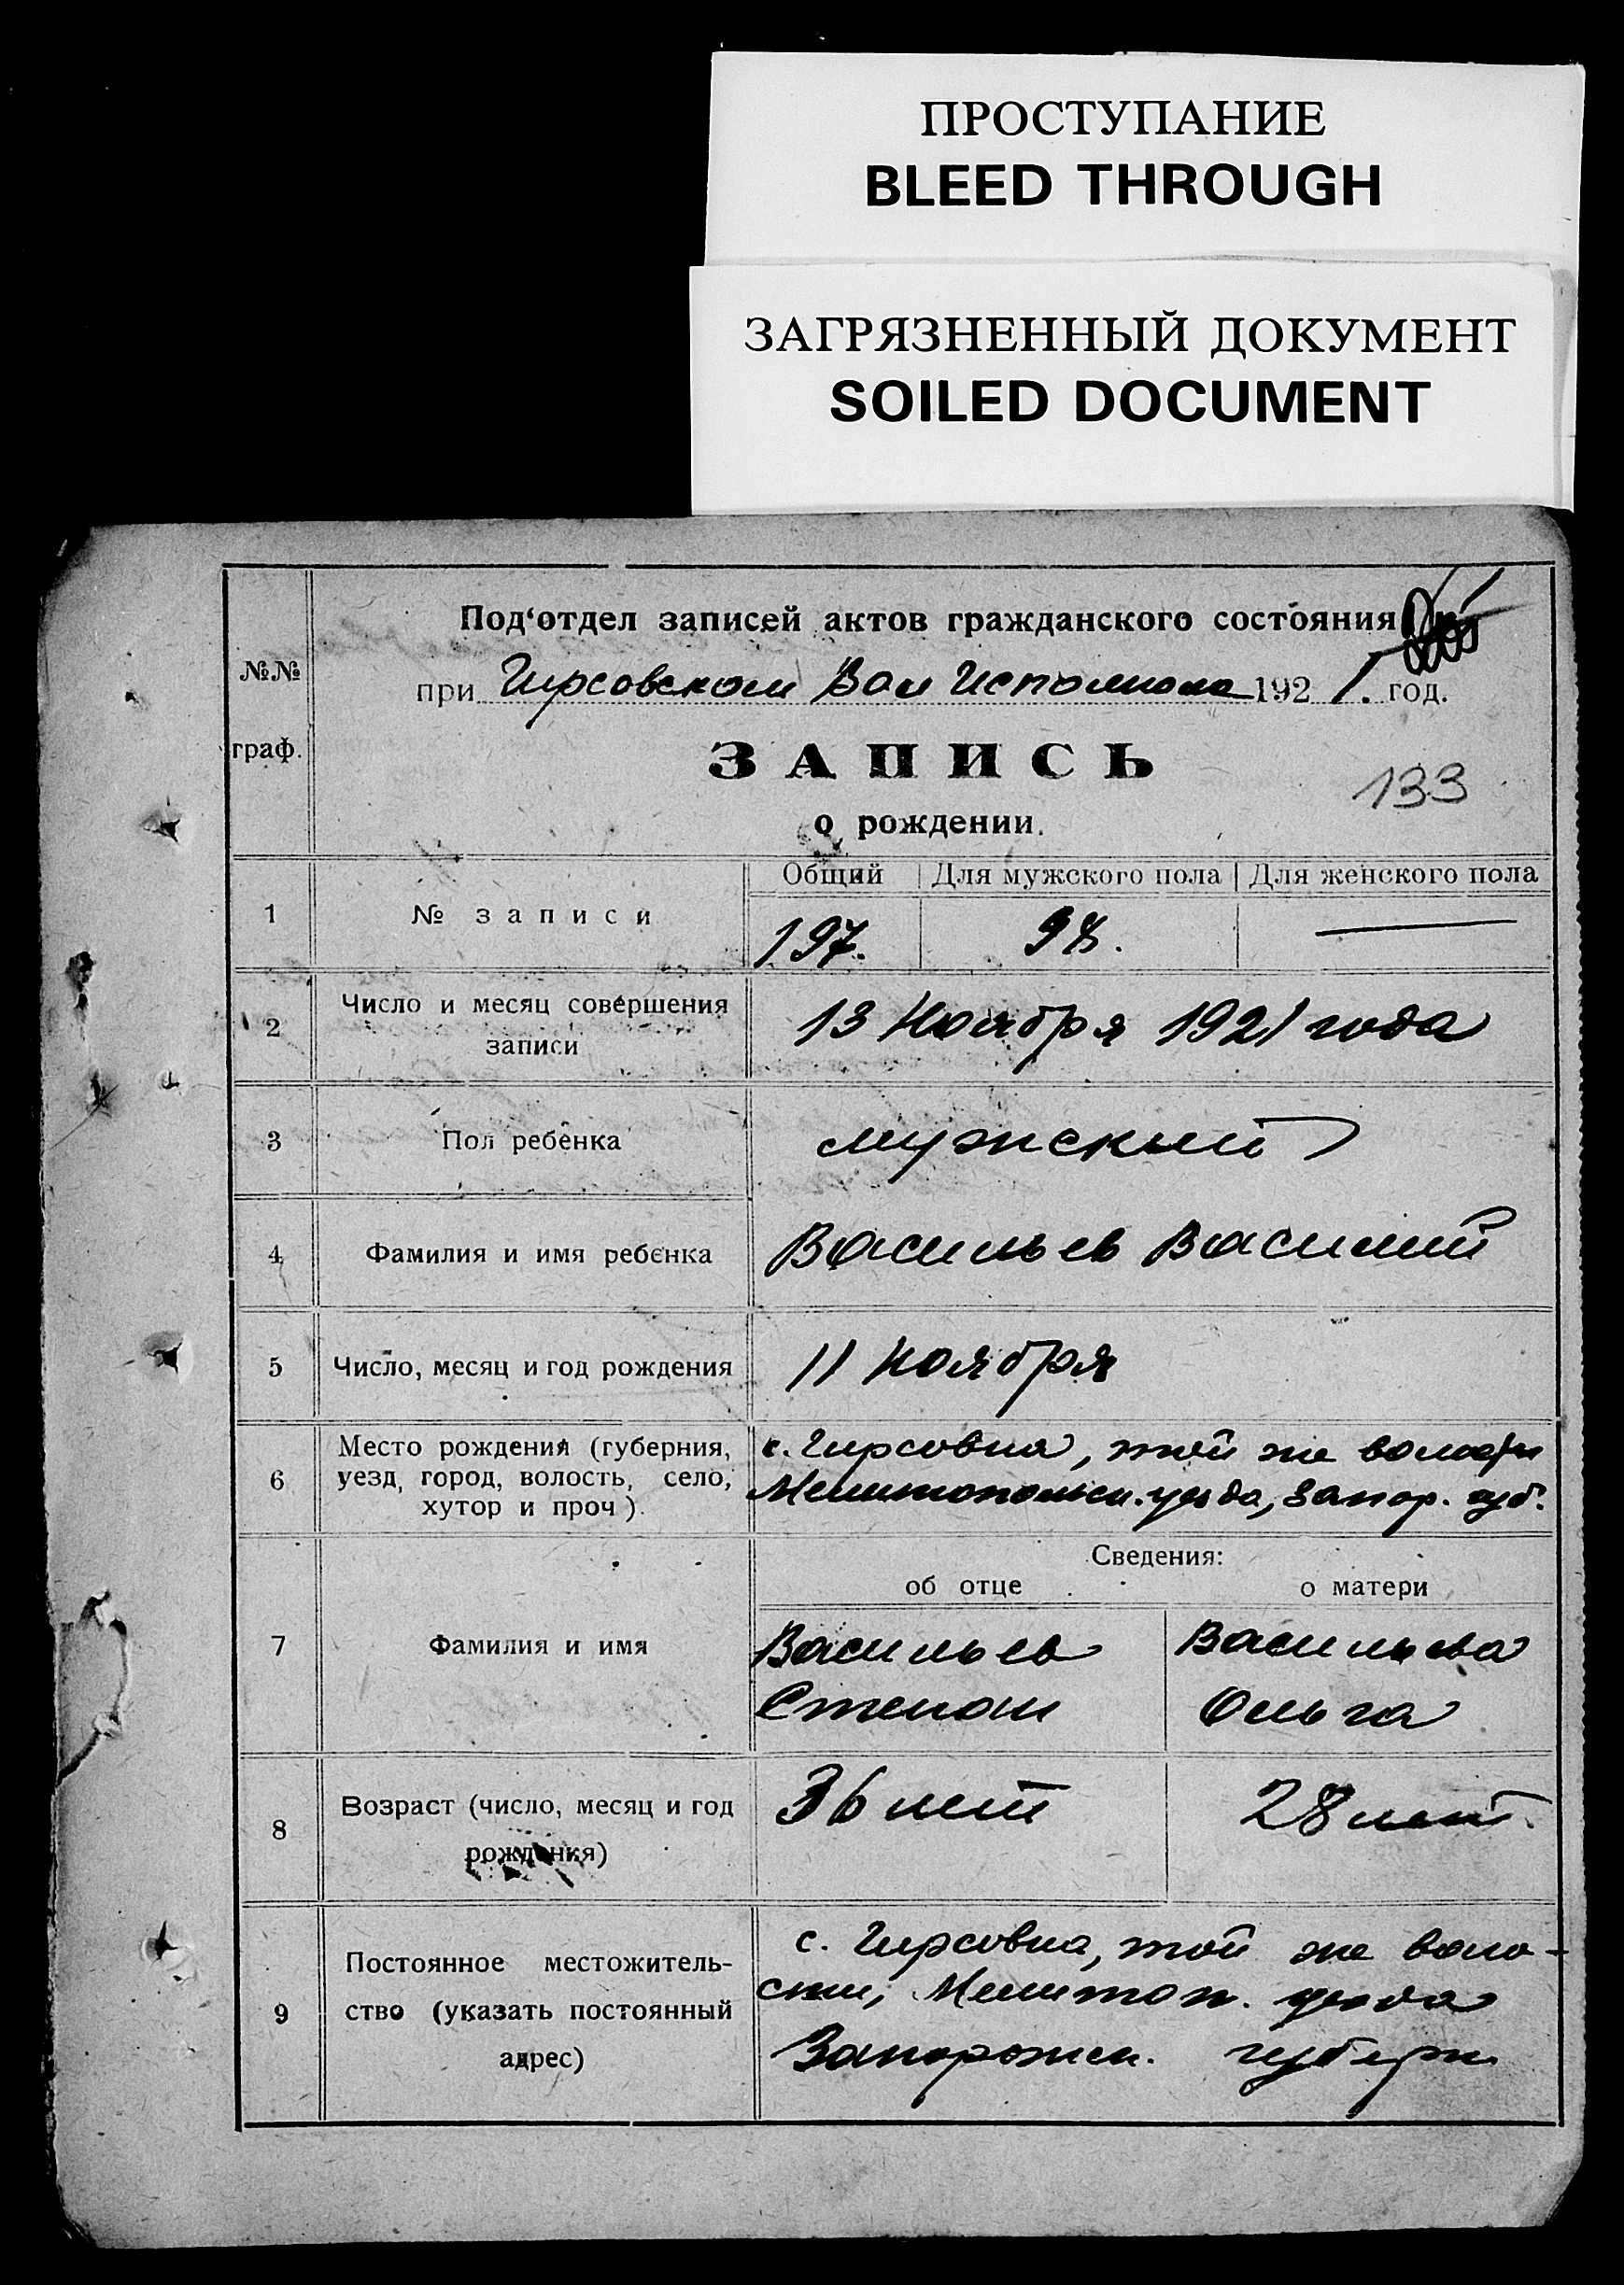 ПРОСТУПАНИЕ
BLEED THROUGH
ЗАГРЯЗНЕННЫЙ ДОКУМЕНТ
SOILED DOCUMENT
№№
граф.
Под‘отдел записей актов гражданского состояния
при Гирсовском Вол Исполкоме 1921. год.
ЗАПИСЬ
133
о рождении.
Общий Для мужского пола Для женского пола
1 № записи 197. 98. —
2 Число и месяц совершения
записи
13 Ноября 1921 года
3 Пол ребенка мужский
4 Фамилия и имя ребенка Васильев Василий
5 Число, месяц и год рождения 11 Ноября
6 Место рождения (губерния,
уезд, город, волость, село,
хутор и проч).
с. Гирсовка, той же волости
Мелитопольск. уезда, Запор. губ.
Сведения:
об отце о матери
7 Фамилия и имя
Васильев Васильева
Степан Ольга
8 Возраст (число, месяц и год
рождения)
36 лет 28 лет.
9 Постоянное местожитель-
ство (указать постоянный
адрес)
с. Гирсовка, той же воло-
сти, Мелитоп. уезда
Запорожск. губерн